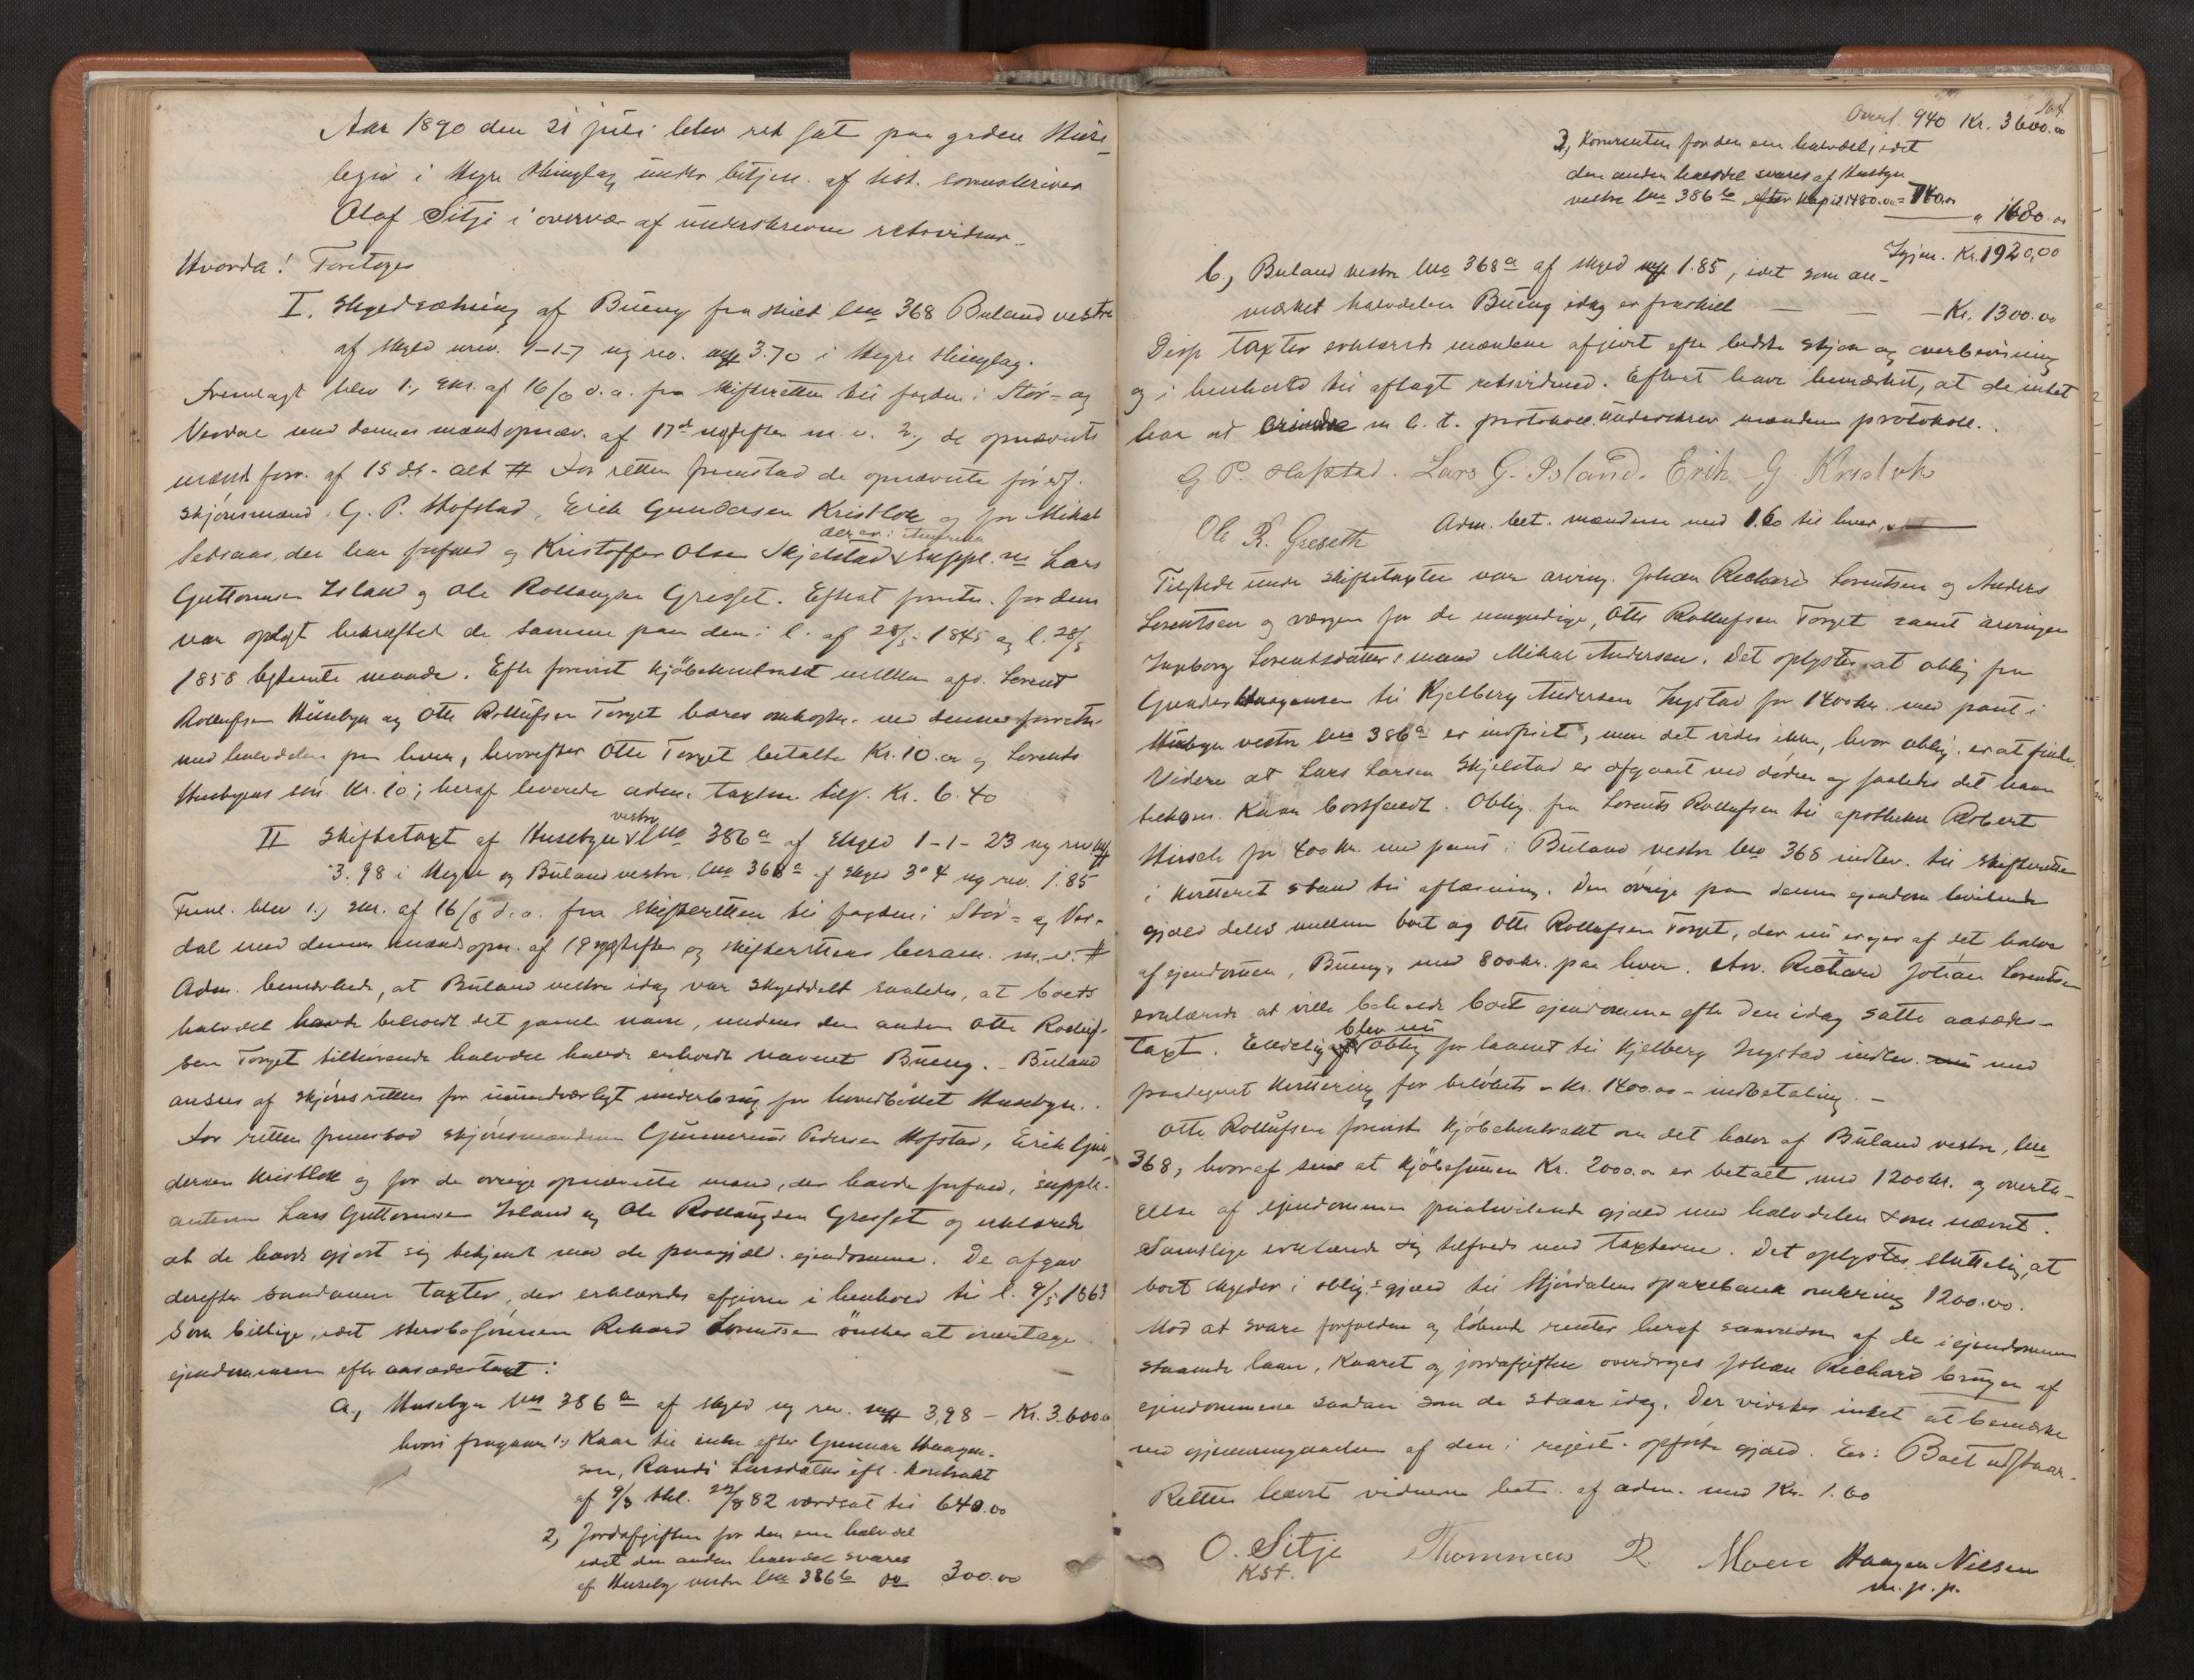 Aar 1890 den 21 juli blev ret sat paa gården Huse-
byen i Hegre thinglag under betjen. af kst. sorenskriver
Olaf Sitje i overvær af underskrevne retsvidner.
Hvorda! Foretoges
I. Skyldsætning af Bueng fraskilt lno 368 Buland vestre
af skyld urev. 1-1-7 og rev. mrk 3.70 i Hegre thinglag.
Fremlagt blev 1., skr. af 16/6 d.a. fra skifteretten til fogden i Stør- og
Verdal med dennes mændsopnæv. af 17de næstefter m.v. 2, de opnævnte
mænds forv. af 15 ds. - alt # For retten fremstod de opnævnte før edf.
skjønsmænd: G. P. Hofstad, Erik Gundersen Kristlok og for Mikal
der er i Amerika
Setsaas, der har forfald og Kristoffer Olsen Skjelstad suppl. ne Lars
Guttormsen Island og Ole Rollaugsen Gresset. Efterat forretn. for dem
var oplyst bekræftet de samme paa den i l. af 28/5 1845 og l. 28/5
1858 bestemte maade. Efter forevist kjøbekontrakt mellem afd. Lorents
Rollufsen Husebyn og Otte Rollufsen Torget bæres omkostn. ved denne forretn.
med halvdelen paa hver, hvorefter Otte Torget betalte Kr. 10.00 og Lorents
Husbyens søn Kr. 10; heraf leverede adm. taxtm. tils. Kr. 6.40
vestre
II Skiftetaxt af Husebyn lno 386a af skyld 1-1-23 ny rev mrk
3.98 i Hegre og Buland vestre, lno 368a af skyld 3 o 4 ny rev. 1.85
Freml. blev 1., skr. af 16/6 d.a. fra skifteretten til fogden i Stør- og Ver-
dal med dennes mændsopn. af 19 næstefter og skifterettens beram. m.v. #
Adm. bemærkede, at Buland vestre idag var skylddelt saaledes, at boets
halvdel havde beholdt det gamle navn, medens den anden Otte Rolluf-
sen Torget tilhørende halvdel havde erholdt navnet Bueng. - Buland
ansees af skjønsretten for uundværligt underbrug for hovedbøllet Husebyn.
For retten fremstod skjønsmændene Gunnerius Pedersen Hofstad, Erik Gun-
dersen Kristlok og for de øvrige opnævnte mænd, der havde forfald, supple-
anterne Lars Guttormsen Island og Ole Rollaugsen Gresset og erklærede
at de havde gjort sig bekjendt med de paagjæld. ejendomme. De afgav
derefter saadanne taxter, der erklæredes afgivne i henhold til l. 9/5 1863
som billige, idet sterboesønnen Rikard Lorentsen ønsker at overtage
ejendommen efter aasædestaxt:
a., Husebyn lno 386a af skyld ny rev. mrk 3,98 - Kr. 3.600.00
hvori fragaar: 1., Kaar til enke efter Gunnar Haagen-
sen, Randi Larsdatter ifl. kontrakt
af 9/3 thl. 22/8 82 værdsat til 640.00
2, Jordafgiften for den ene halvdel
idet den anden halvdel svares
af Huseby vestre lno 386b do 300.00
Overf. 940 Kr. 3600.00
3, Kornrenten for den ene halvdel, idet
den anden halvdel svares af Husbyn
vestre lno 386b, efter kapit. 1480.00 = 740.00
" 1680.00
Igjen. Kr. 1920,00
b., Buland vestre lno 368a af skyld mrk 1.85, idet som an-
mærket halvdelen Bueng idag er fraskilt — — — Kr. 1300.00
Disse taxter erklærede mændene afgivet efter bedste skjøn og overbevisning
og i henhold til aflagt retsvidned. Efterat have bemærket, at de intet
har at erindre m. h. t. protokoll. underskrev mændene protokoll.
G P. Hofstad. Lars G. Island. Erik G. Kristlok
Ole R. Greseth Adm. bet. mændene med 1.60 til hver.
Tilstede under skiftetaxten var arving. Johan Richard Lorentsen og Anders
Lorentsen og værgen for de umyndige, Otte Rollufsen Torget samt arvingen
Ingeborg Lorentsdatters mand Mikal Andersen. Det oplystes at oblig fra
Gunder Haagensen til Kjelberg Andersen Ingstad for 1400 kr. med pant i
Husbyn vestre lno 386a er indfriet, men det vides ikke, hvor oblig. er at finde.
Videre at Lars Larsen Skjelstad er afgaaet ved døden og saaledes det ham
tilkom. Kaar bortfaldt. Oblig. fra Lorents Rollufsen til apotheker Robert
Hirsch for 400 kr. med pant i Buland vestre lno 368 indlev. til skifteretten
i kvitteret stand til aflæsning. Den øvrige paa denne ejendom hvilende
gjæld deles mellem boet og Otte Rollufsen Torget, der nu er ejer af det halve
af ejendommen, Bueng, med 800 kr. paa hver. Arv. Richard Johan Lorentsen
erklærede at ville beholde boets ejendomme efter den idag satte aasædes-
blev nu
taxt. Endelig oblig for laanet til Kjelberg Ingstad indlev. med
paategnet kvittering for beløbets - Kr. 1400.00 - indbetaling. -
Otte Rollufsen forevist kjøbekontrakt om det halve af Buland vestre, lno
368, hvoraf sees at kjøbesummen Kr. 2000.00 er betalt med 1200 kr. og overta-
gelse af ejendommen paahvilende gjæld med halvdelen som nævnt.
Samtlige erklærede sig tilfreds med taxterne. Det oplystes sluttelig, at
boet skylder i oblig. gjæld til Stjørdalens sparebank omkring 1200.00.
Mod at svare forfaldne og løbende renter heraf samt som af de i ejendommen
staaende laan, Kaaret og jordafgiften overdrages Johan Richard brugen af
ejendommene saadan som de staar idag. Der vidstes intet at bemærke
ved gjennemgaaelsen af den i regist. opførte gjæld. Er: Boet udstaar.
Retten hævet vidnerne bet. af adm. med Kr. 1.60
O. Sitje Thommas R. Moen Haagen Nielsen
Kst. m.p.p.